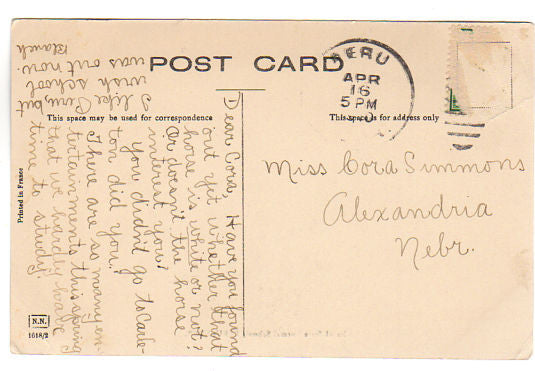 POST CARD
PERU
APR
16
5 PM
This space may be used for correspondence
This space is for address only
Dear Cora, Have you found
out yet whether that
horse is white or not?
Or doesn't the horse
interest you?
You didn't go to Carle-
ton did you?
There are so many en-
tertainments this spring
that we hardly have
time to study.
I like Peru, but
wish school
was out now.
Blanch
Miss Cora Simmons
Alexandria
Nebr.
Printed in France
N.N.
1618/2